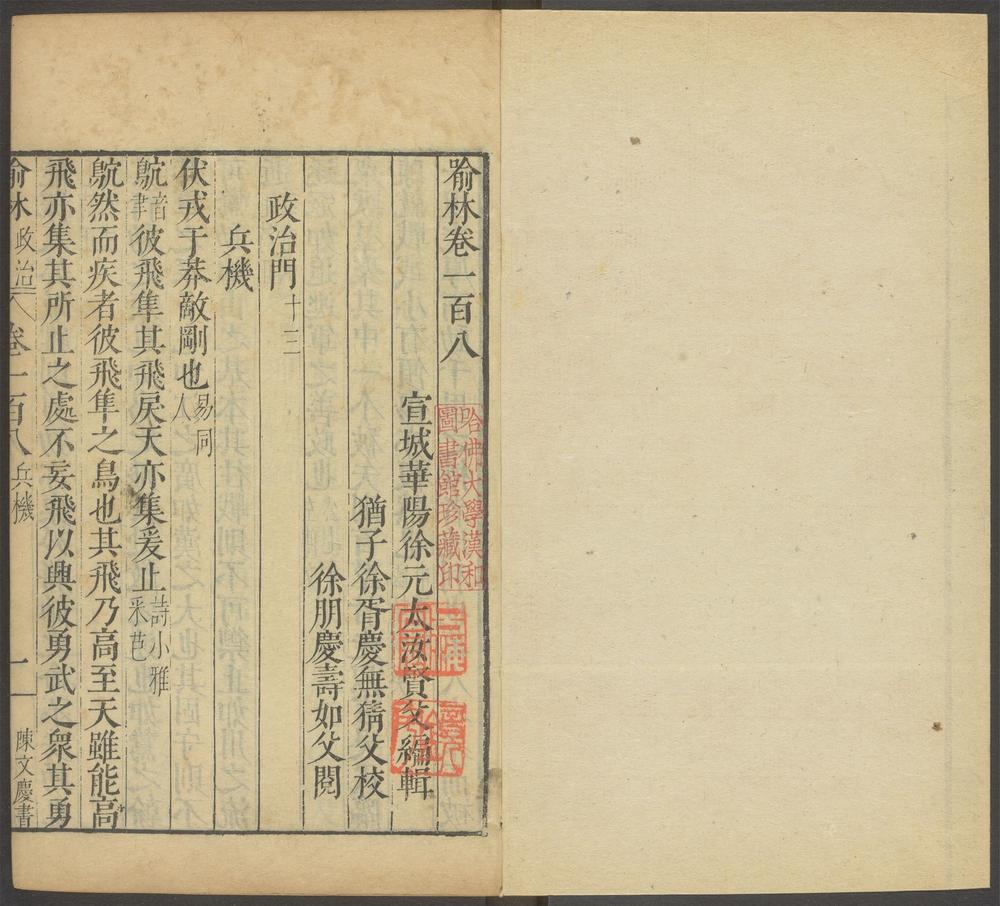 喻林卷一百八
宣城華陽徐元太汝賢父編輯
猶子徐胥慶無猜父校
徐朋慶壽如父閱
政治門十三
兵機
伏戎于莽敵剛也易同人
鴥音聿彼飛隼其飛戾天亦集爰止詩小雅采芑
鴥然而疾者彼飛隼之鳥也其飛乃高至天雖能高
飛亦集其所止之處不妄飛以興彼勇武之衆其勇
喻林 政治 卷一百八 兵機 一 陳文慶書
哈佛大學漢和
圖書館珍藏印